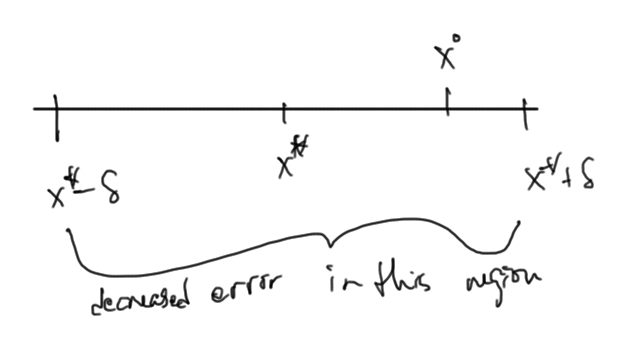 x°
x* - δ
x*
x* + δ
decreased error in this region